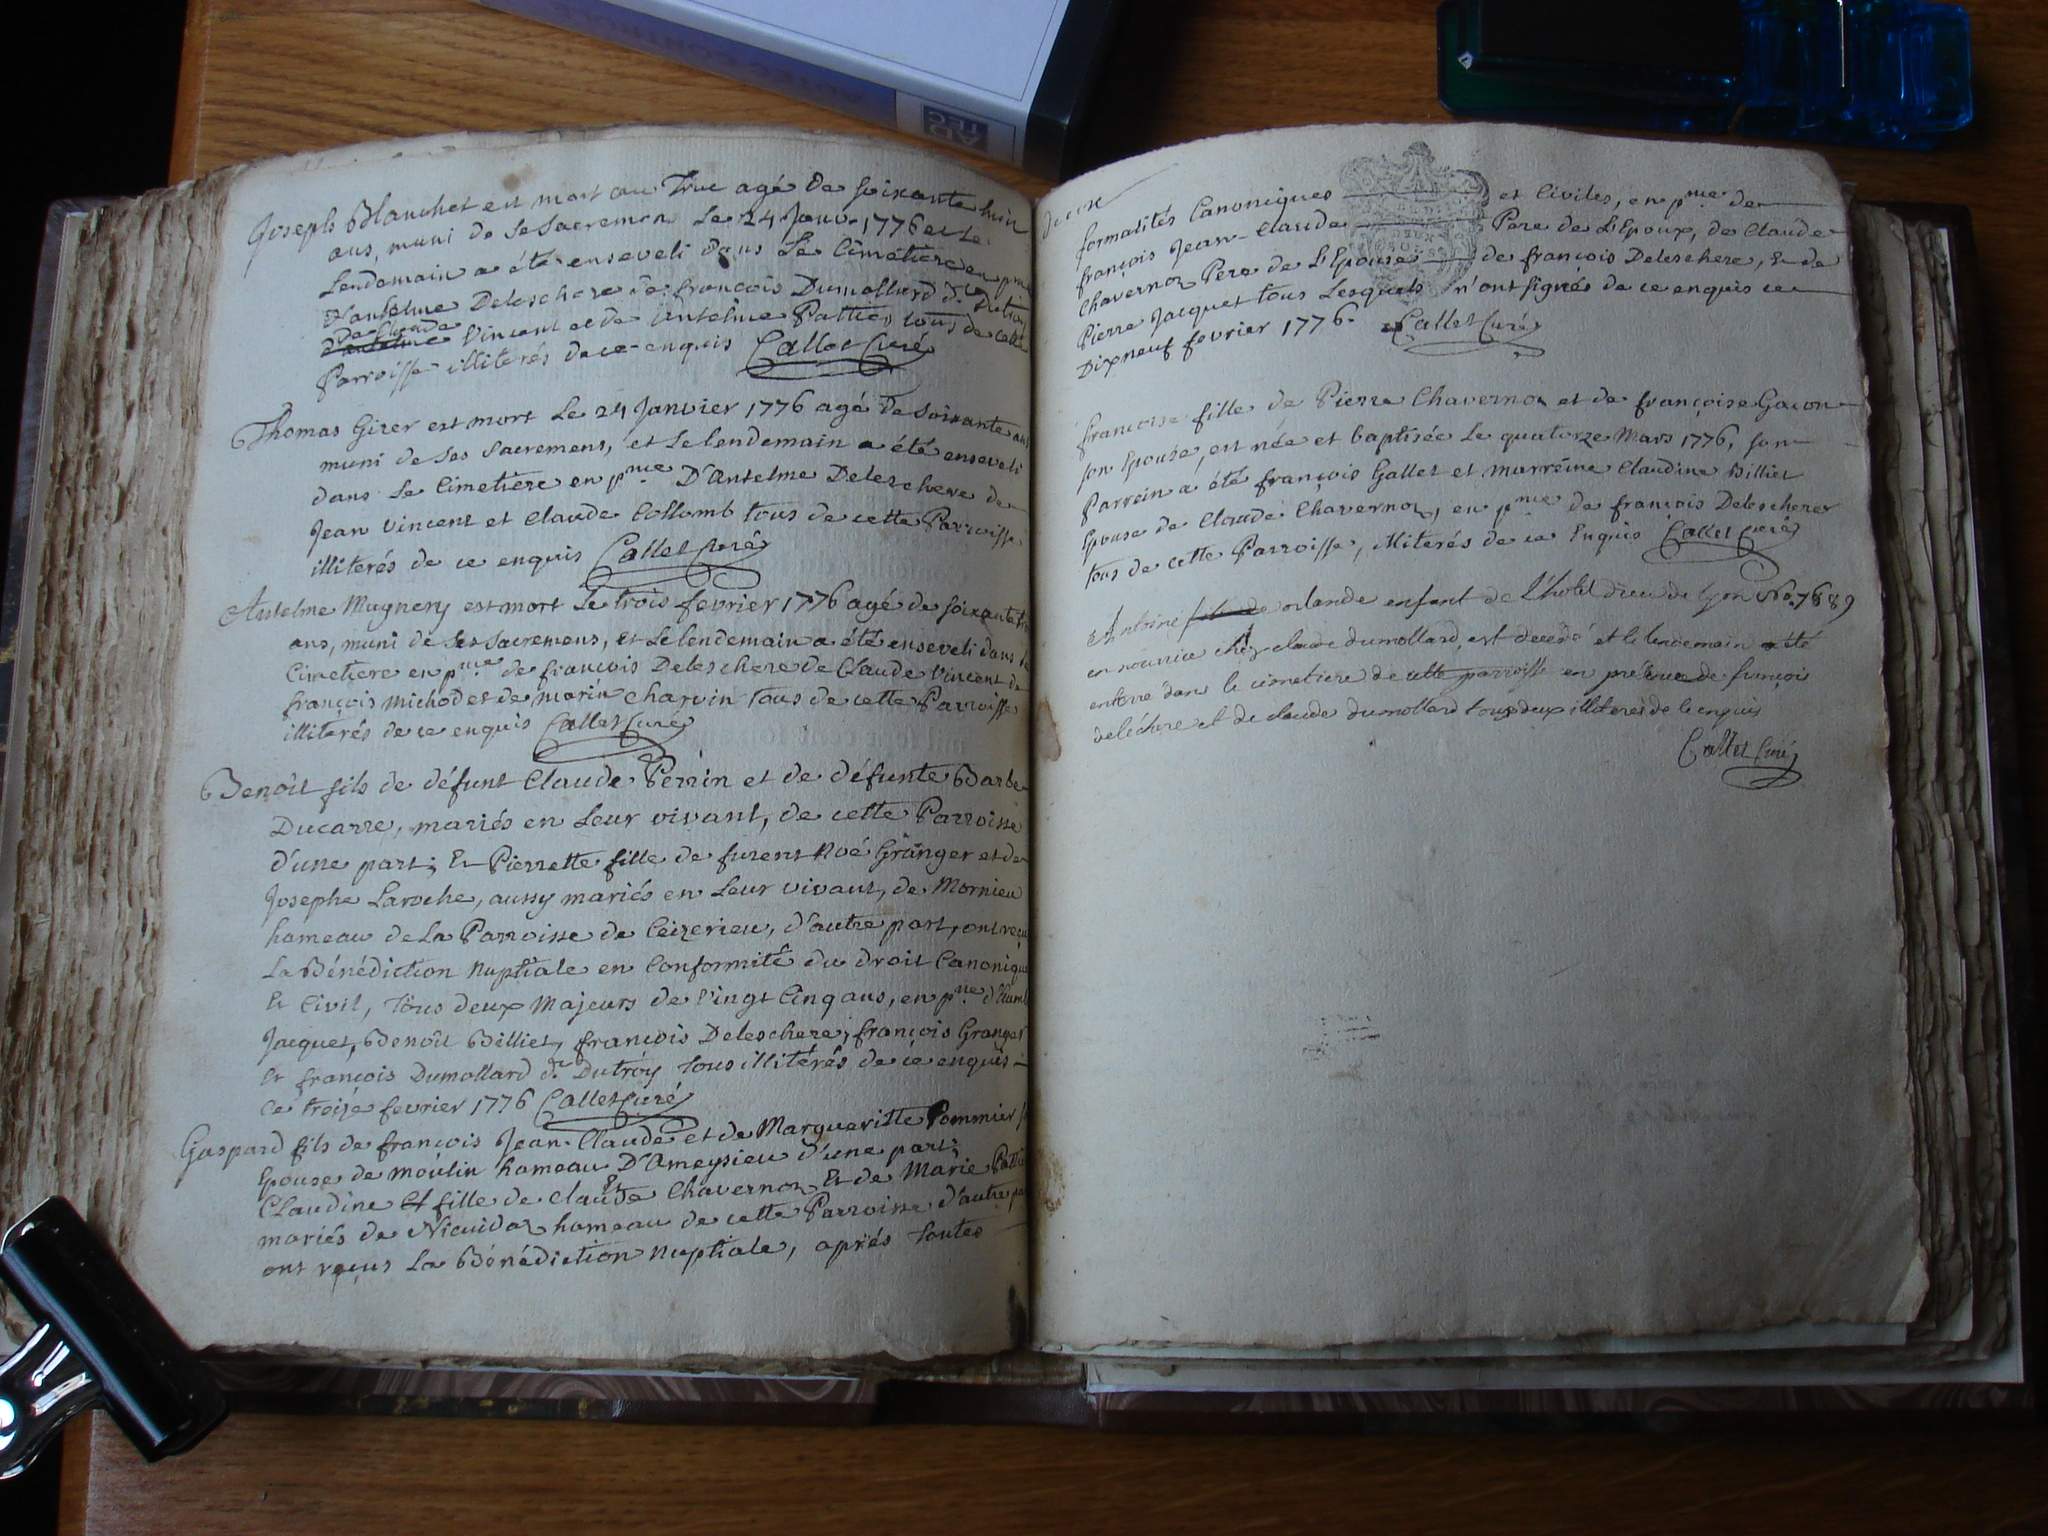 Joseph Blanchet est mort au Truc agé de Soixante huit
ans, muni de Se Sacremen Le 24 Janv. 1776 et Le
Lendemain a été enseveli dans Le Cimetiere en pnce
d'antelme Deleschere de françois Dumollard dt Dutroy
de Claude
Vincent et de antelme Pattier, tous de cette
Parroisse illiterés de ce enquis Callet Curé
Thomas Girer est mort Le 24 Janvier 1776 agé de Soixante ans
muni de Ses Sacremens, et Le lendemain a été enseveli
dans Le Cimetiere en pnce D'Antelme Deleschere de
Jean Vincent et Claude Collomb tous de cette Parroisse
illiterés de ce enquis Callet Curé
Antelme Mugnery est mort Le trois fevrier 1776 agé de soixante
ans, muni de Ses Sacremens, et Le lendemain a été enseveli dans le
Cimetiere en pnce de françois Deleschere de Claude Vincent de
françois michod et de marin charvin tous de cette Parroisse
illiterés de ce enquis Callet Curé
Benoît fils de défunt Claude Perrin et de défunte Barbe
Ducarre, mariés en Leur vivant, de cette Parroisse
d'une part; Et Pierrette fille de furent Noé Granger et de
Josephe Laroche, aussy mariés en Leur vivant, de Mornieu
hameau de La Parroisse de Ceizerieu, d'autre part, ont reçu
La Bénédiction Nuptiale en Conformité du droit Canonique
Et Civil, Tous deux Majeurs de Vingt Cinq ans, en pnce
Jacquet, Benoît Billiet, françois Deleschere, françois Granger
Et françois Dumollard dt Dutroy tous illitérés de ce enquis
Ce treize fevrier 1776 Callet Curé
Gaspard fils de françois Jean-Claude et de Margueritte Pommier
Epouse de moulin hameau D'Ameysieu d'une part;
Claudine Et fille de Claude Chavernoz Et de Marie
mariés de hameau de cette Parroisse d'autre part
ont reçus La Bénédiction Nuptiale, après toutes
formalités Canoniques et Civiles, en pnce de
françois Jean-Claude Pere de L'Epoux, de Claude
Chavernoz Pere de L'Epouse de françois Deleschere, Et de
Pierre Jacquet tous Lesquels n'ont signés de ce enquis ce
Dixneuf fevrier 1776. Callet Curé
françoise fille de Pierre Chavernoz et de françoise Gacon
son Epouse, est née et baptisée Le quatorze Mars 1776, son
Parrein a été françois Gallet et marreine Claudine Billiet
Epouse de Claude Chavernoz, en pnce de françois Deleschere
tous de cette Parroisse, illiterés de ce Enquis Callet Curé
Antoine orlande enfant de L'hotel dieu de Lyon No. 7689
en nourrice chez claude dumollard, est decedé et le lendemain a été
enterré dans le cimetiere de cette parroisse en présence de françois
delechere et de claude dumollard tous deux illiterés de ce enquis
Callet Curé